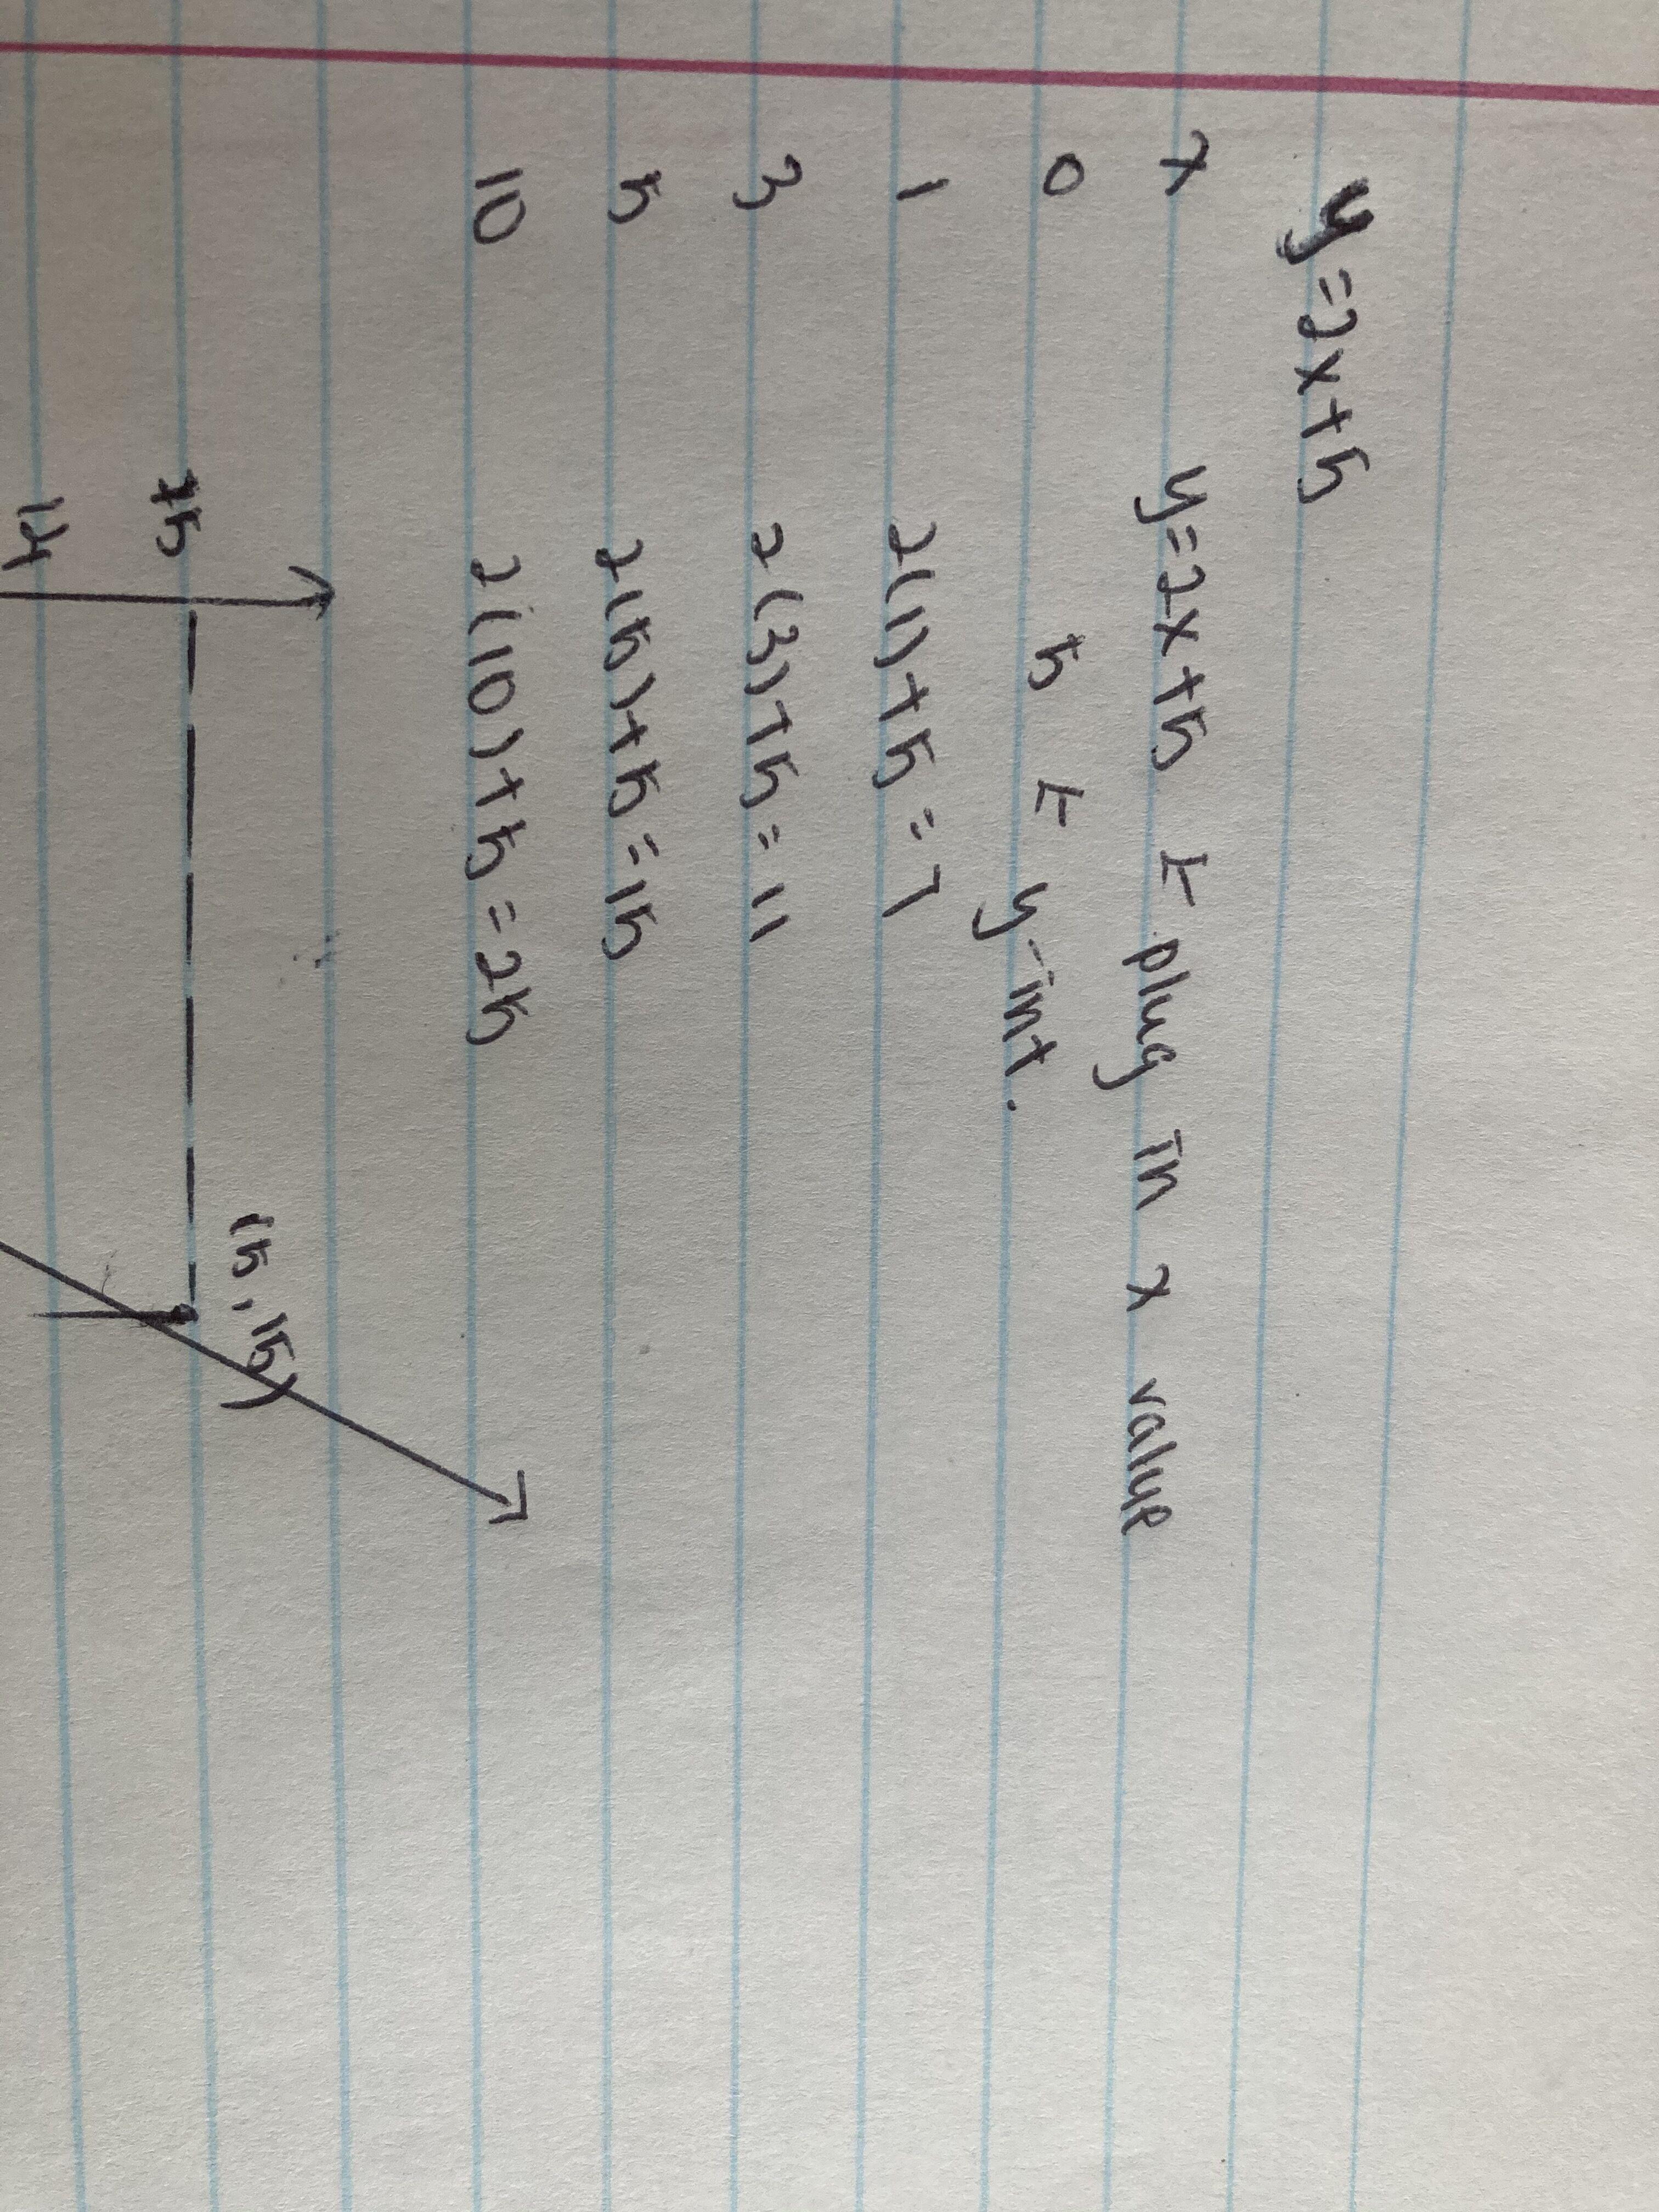 y=2x+5
x y=2x+5 ← plug in x value
0 5 ← y-int.
1 2(1)+5=7
3 2(3)+5=11
5 2(5)+5=15
10 2(10)+5=25
(5,15)
14